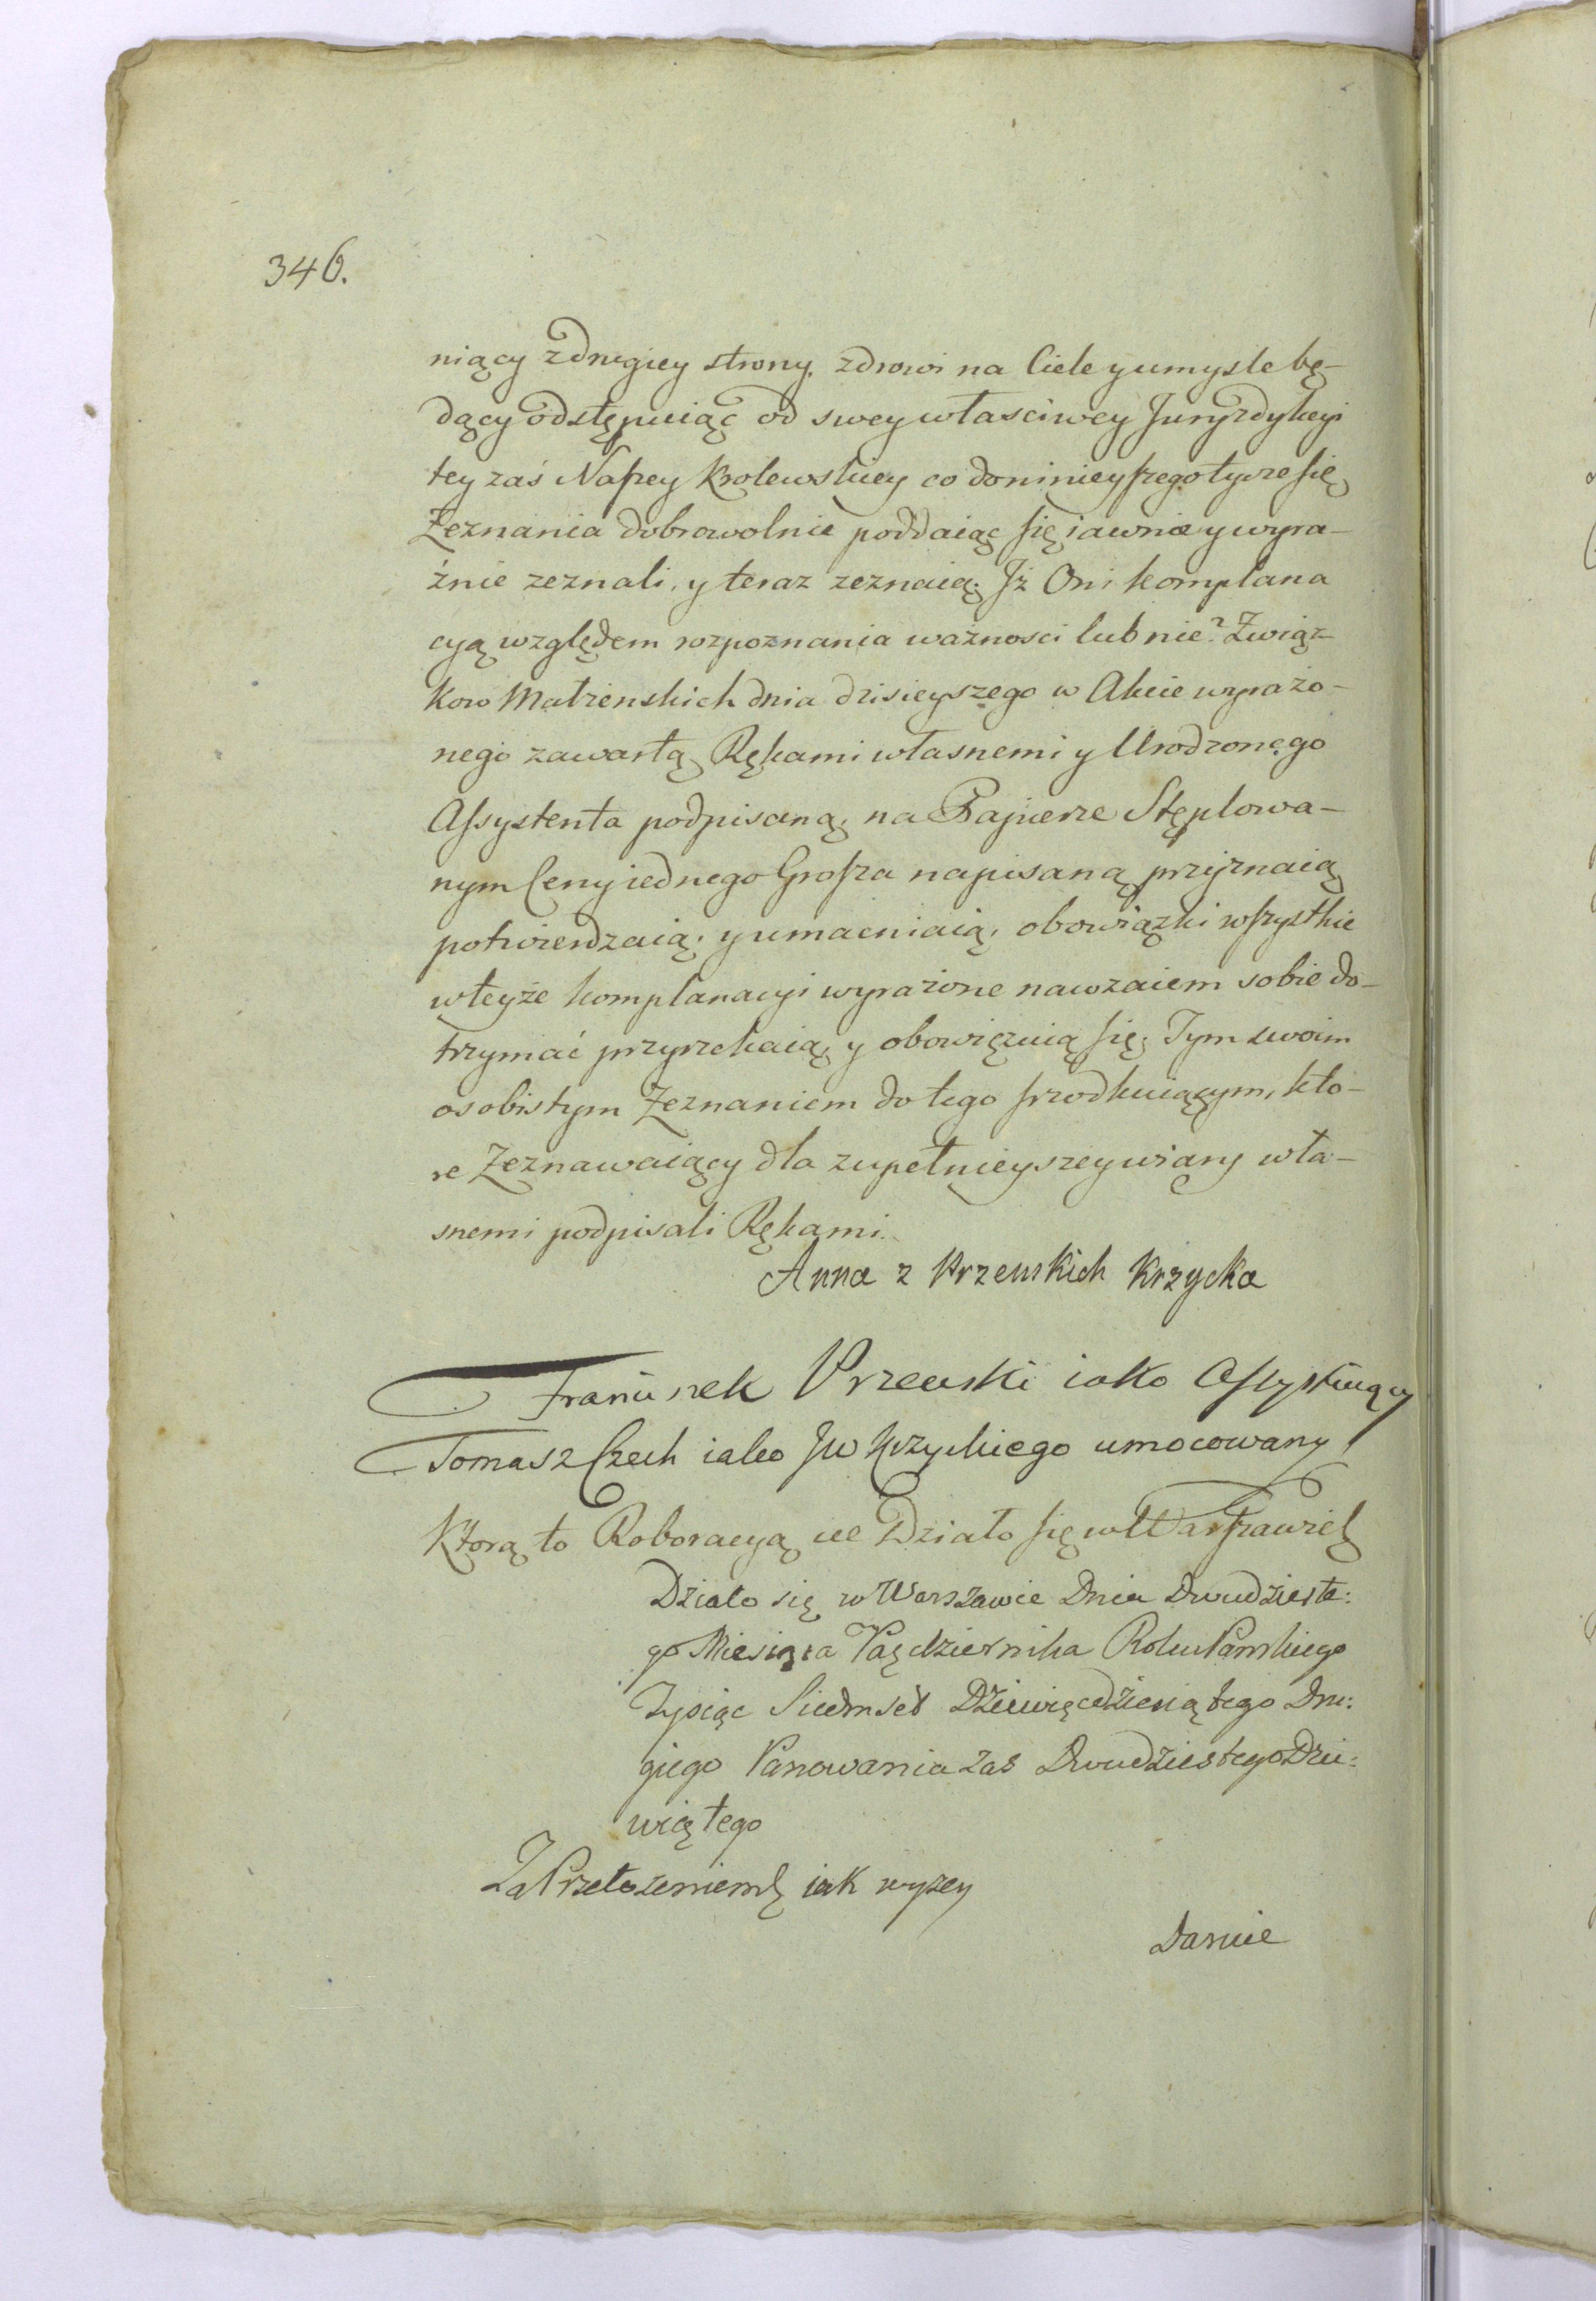 346.
niący z drugiey strony, zdrowi na Ciele y umysle bę-
dący odstępuiąc od swey własciwey Juryzdykcyi
tey zaś Naszey Krolewskiey co do ninieyszego tycze się
Zeznania dobrowolnie poddaiąc się iawnie y wyra-
źnie zeznali, y teraz zeznaią. Jż Oni komplana
cyą względem rozpoznania ważnosci lub nie? Związ-
kow Małżenskich dnia dzisieyszego w Akcie wyrażo-
nego zawartą Rękami własnemi y Urodzonego
Assystenta podpisaną, na Papierze Stęplowa-
nym Ceny iednego Grosza napisaną przyznaią
potwierdzaią, y umacniaią, obowiązki wszystkie
w teyże komplanacyi wyrażone nawzaiem sobie do-
trzymać przyrzekaią y obowięzuią się, Tym swoim
osobistym Zeznaniem do tego srzodkuiącym, kto-
re Zeznawaiący dla zupełnieyszey wiary wła-
snemi podpisali Rękami.
Anna z Przeuskich Krzycka
Franciszek Przeuski iako Assystuiący
Tomasz Czech iako JW Krzyckiego umocowany
Ktorą to Roboracyą etc Działo się w Warszawie
Działo się w Warszawie Dnia Dwudzieste:
go Miesiąca Pazdziernika Roku Panskiego
Tysiąc Siedmset Dziewięcdziesiątego Dru:
giego Panowania zas Dwudziestego Dzie:
wiątego
Za Przełozeniem iak wyzey